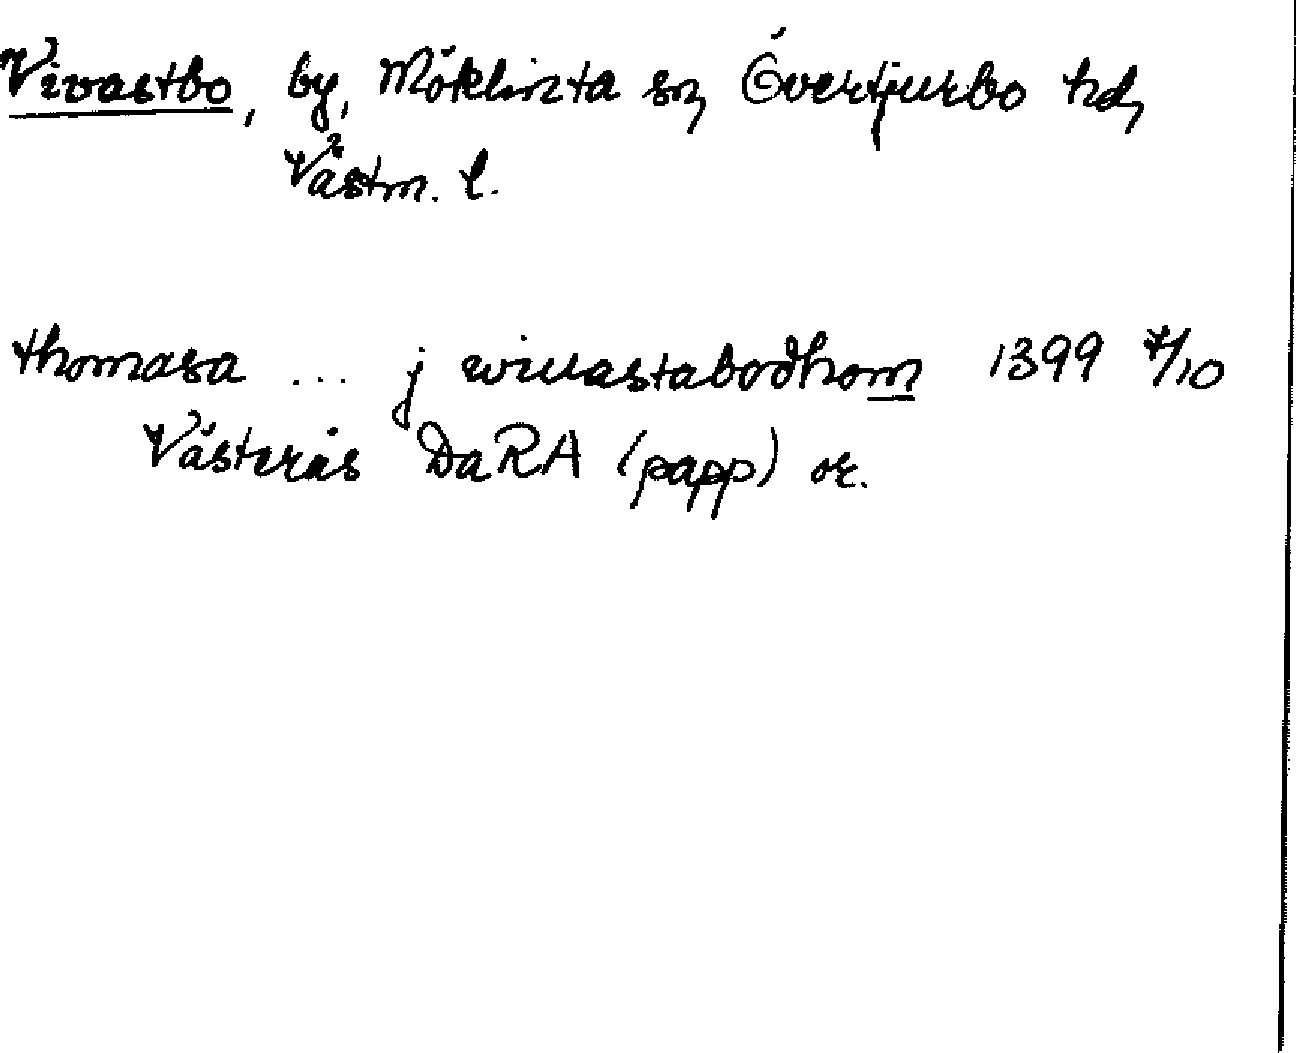 Vivastbo, by, Möklinta sn, Övertjurbo hd,
Västm. l.
thomasa ... j wiuastabodhom 1399 7/10
Västerås DaRA (papp) or.